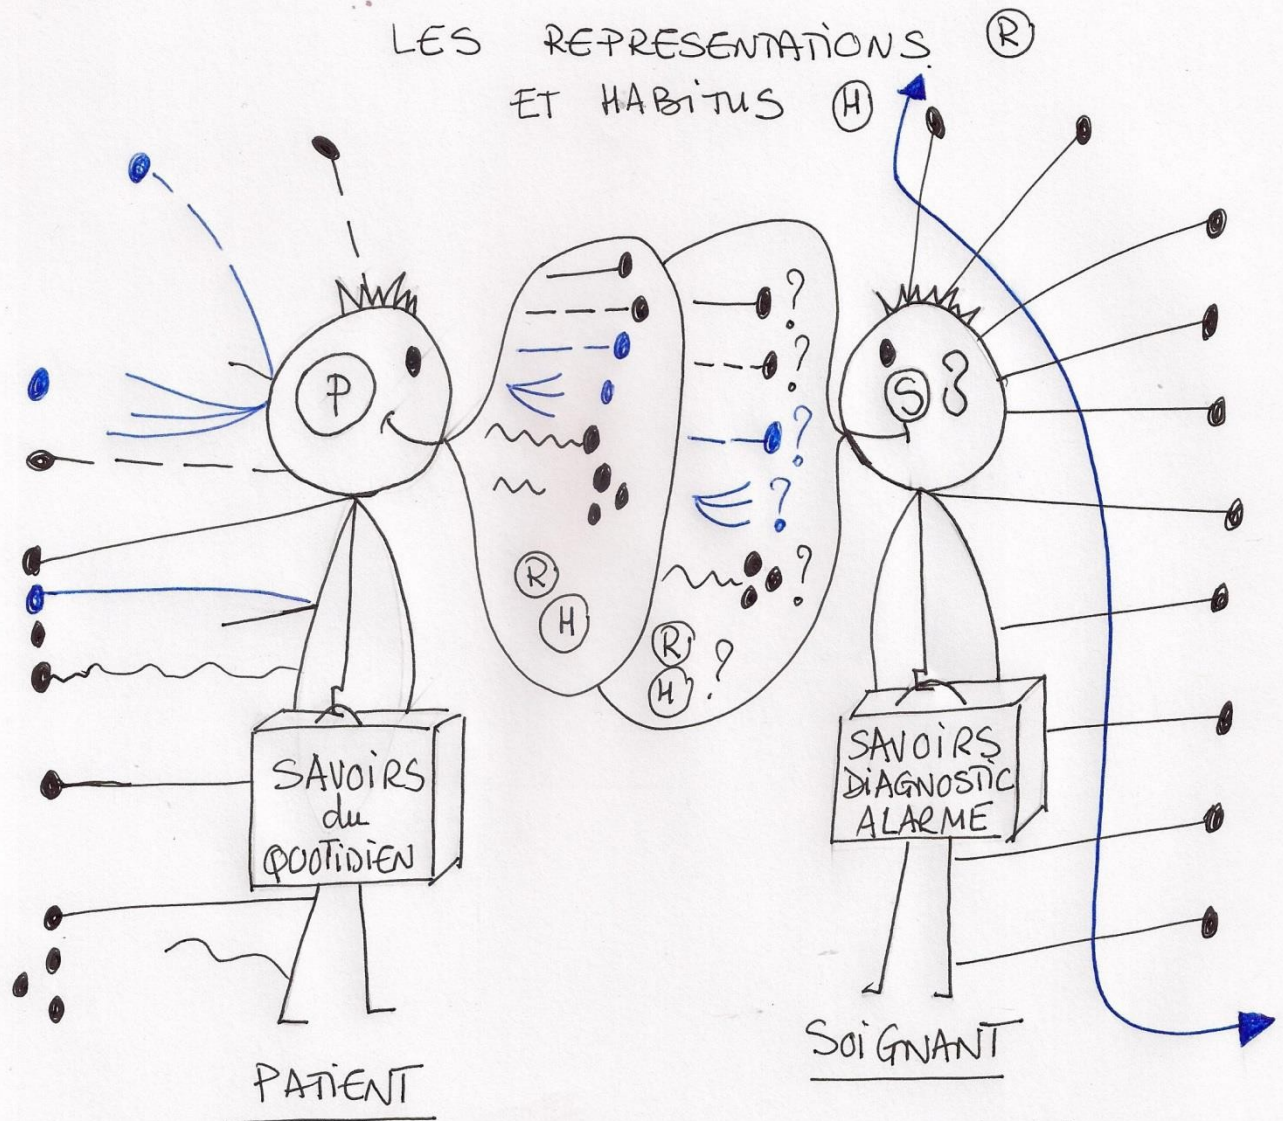 LES REPRESENTATIONS R
ET HABITUS H
P
R
H
? 
?
?
?
?
R
H ?
S ?
SAVOIRS
du
QUOTIDIEN
SAVOIRS
DIAGNOSTIC
ALARME
PATIENT
SOIGNANT